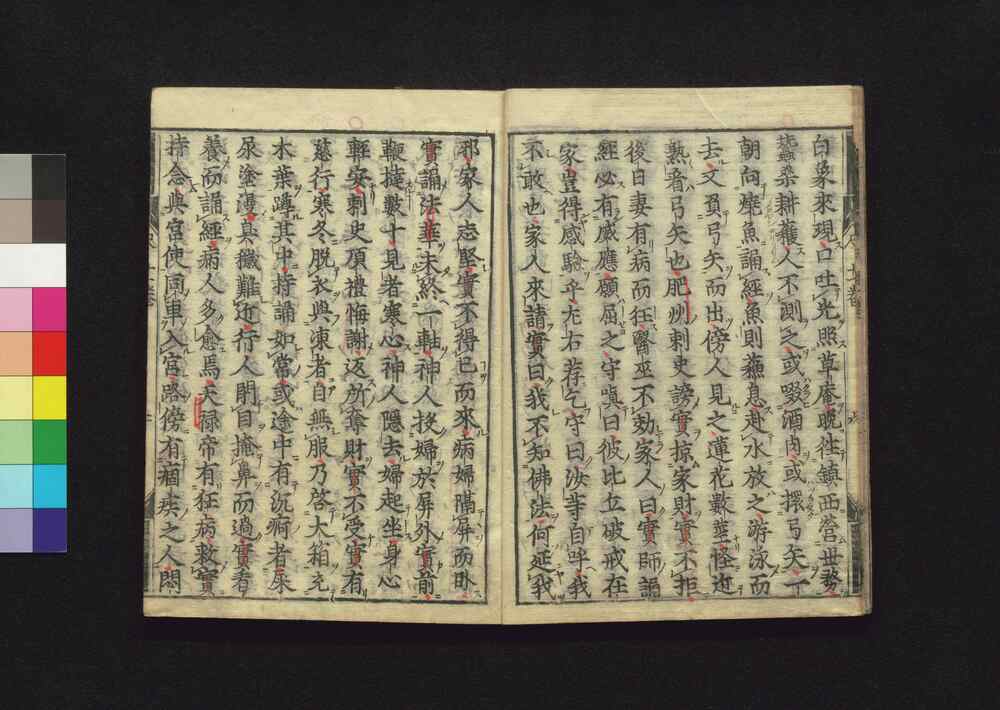 白象來現口吐光照草庵晚往鎮西營世務
蠶桑耕穫人不測之或啜酒肉或擐弓矢一
朝向燒魚誦經魚則蘇息赴水放之游泳而
去又負弓矢而出傍人見之蓮花數莖怪近
熟者弓矢也肥州刺史謗實掠家財實不拒
後日妻有病而狂醫巫不効家人曰實師誦
經必有感應願屈之守嗔曰彼比丘破戒在
家豈得感驗乎左右荐乞守曰汝等自呼我
不敢也家人來請實曰我不知佛法何延我
邪家人志堅實不得已而來病婦隔屏而臥
實誦法華未終一軸神人投婦於屏外實前
鞭撻數十見者寒心神人隱去婦起坐身心
輕安刺史頂禮悔謝返所奪財實不受實有
慈行寒冬脫衣與凍者自無服乃啓大箱充
木葉蹲其中持誦如常或途中有沉痾者屎
尿塗漫臭穢難近行人閉目掩鼻而過實看
養而誦經病人多愈焉天祿帝有狂病敕實
持念與宮使同車入宮路傍有痼疾之人悶